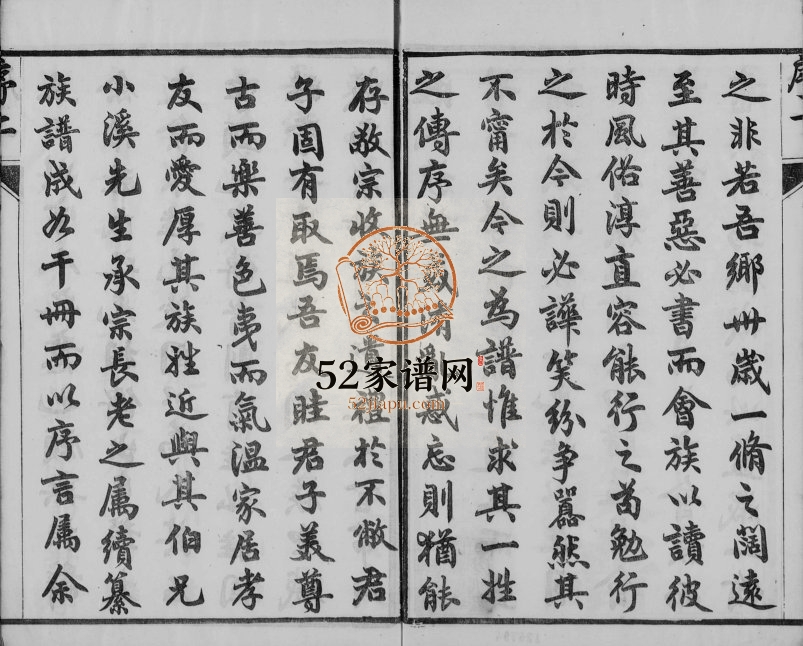 之非若吾鄉卅歲一脩之闊遠
至其善惡必書而會族以讀彼
時風俗淳直容能行之茍勉行
之於今則必譁笑紛爭囂然其
不甯矣今之為譜惟求其一姓
之傳序無 感忘則猶能
存敬宗收族 於不敝君
子固有取焉吾友眭君子美尊
古而樂善色夷而氣溫家居孝
友而愛厚其族姓近與其伯兄
小溪先生承宗長老之属續纂
族譜成若干冊而以序言属余
序一
序二
52家谱网